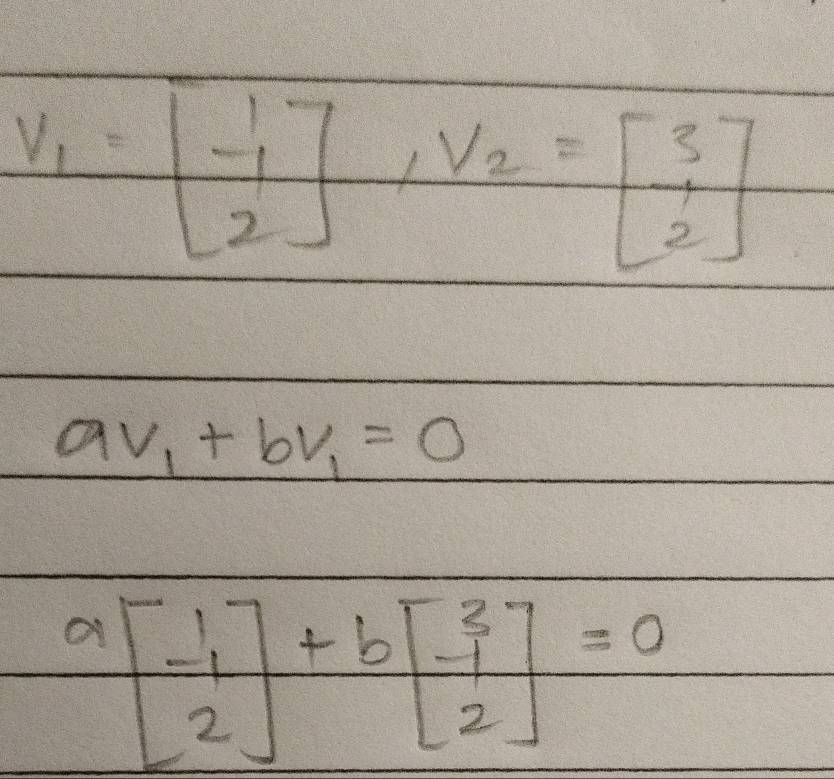 V₁ = [1 -1 2], V₂ = [3 -1 2]
av₁ + bv₁ = 0
a[1 -1 2] + b[3 -1 2] = 0